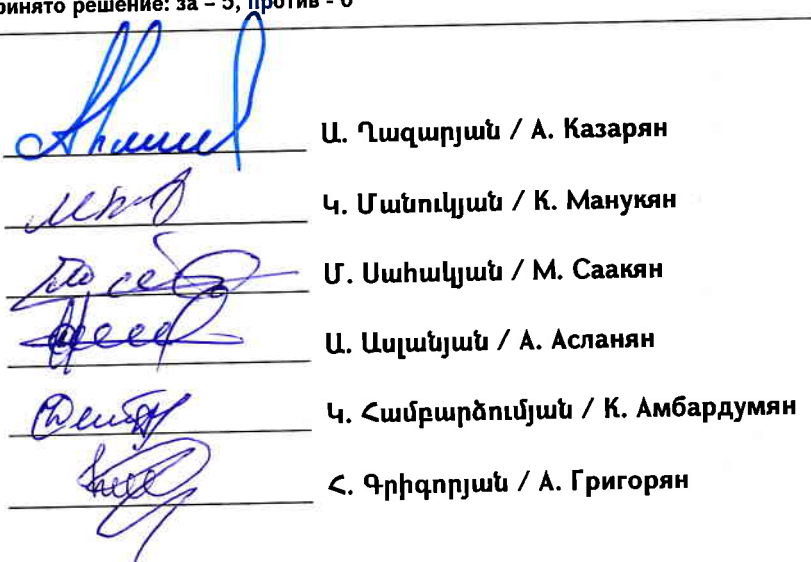 ринято решение: за – 5, против - 0
Ա. Ղազարյան / А. Казарян
Կ. Մանուկյան / К. Манукян
Մ. Սահակյան / М. Саакян
Ա. Ասլանյան / А. Асланян
Կ. Համբարձումյան / К. Амбардумян
Հ. Գրիգորյան / А. Григорян